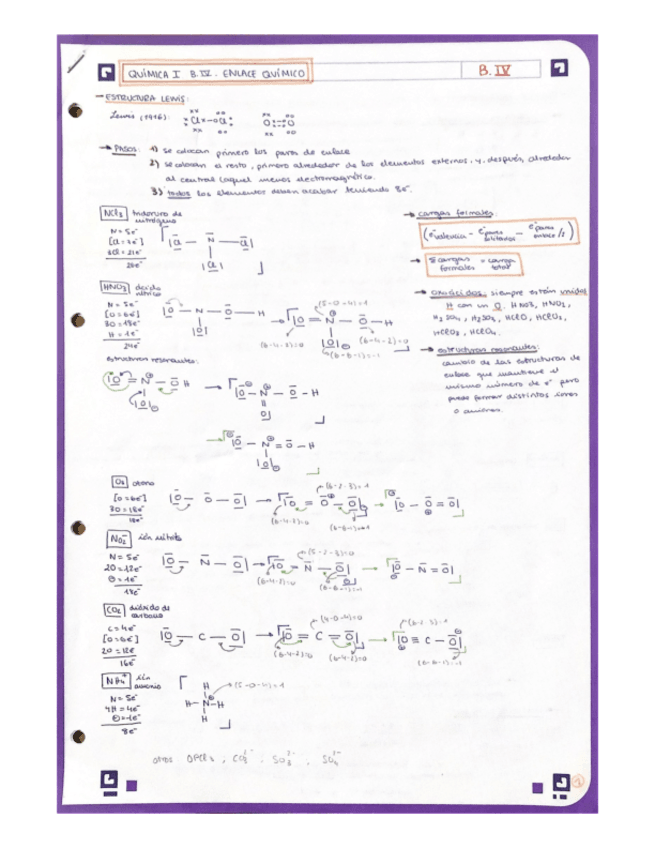 QUÍMICA I B.IV. ENLACE QUÍMICO
B.IV
ESTRUCTURA LEWIS:
Lewis (1916):
PASOS: 1) Se colocan primero los pares de enlace
2) Se colocan el resto, primero alrededor de los elementos externos, y, después, alrededor
al central (aquel menos electronegativo).
3) todos los elementos deben acabar teniendo 8e⁻.
NCl3 tricloruro de nitrógeno
N = 5e⁻
[Cl = 7e⁻]
3Cl = 21e⁻
26e⁻
cargas formales:
(e⁻valencia - e⁻pares solitarios - e⁻pares enlace/2)
Σ cargas formales = carga total
HNO3 ácido nítrico
N = 5e⁻
[O = 6e⁻]
3O = 18e⁻
H = 1e⁻
24e⁻
(5-0-4)=1
(6-4-2)=0
(6-4-2)=0
(6-6-1)=-1
oxoácidos: siempre están unidos
H con un O. HNO3, HNO2,
H2SO4, H2SO3, HClO, HClO2,
HClO3, HClO4.
estructuras resonantes:
cambio de las estructuras de
enlace que mantiene el
mismo número de e⁻ pero
puede formar distintos iones
o aniones.
estructuras resonantes:
O3 ozono
[O = 6e⁻]
3O = 18e⁻
18e⁻
(6-2-3)=1
(6-4-2)=0
(6-6-1)=-1
NO2⁻ ión nitrito
N = 5e⁻
2O = 12e⁻
⊖ = 1e⁻
18e⁻
(5-2-3)=0
(6-4-2)=0
(6-6-1)=-1
CO2 dióxido de carbono
C = 4e⁻
[O = 6e⁻]
2O = 12e⁻
16e⁻
(4-0-4)=0
(6-4-2)=0
(6-4-2)=0
(6-2-3)=1
(6-6-1)=-1
NH4⁺ ión amonio
N = 5e⁻
4H = 4e⁻
⊕ = -1e⁻
8e⁻
(5-0-4)=1